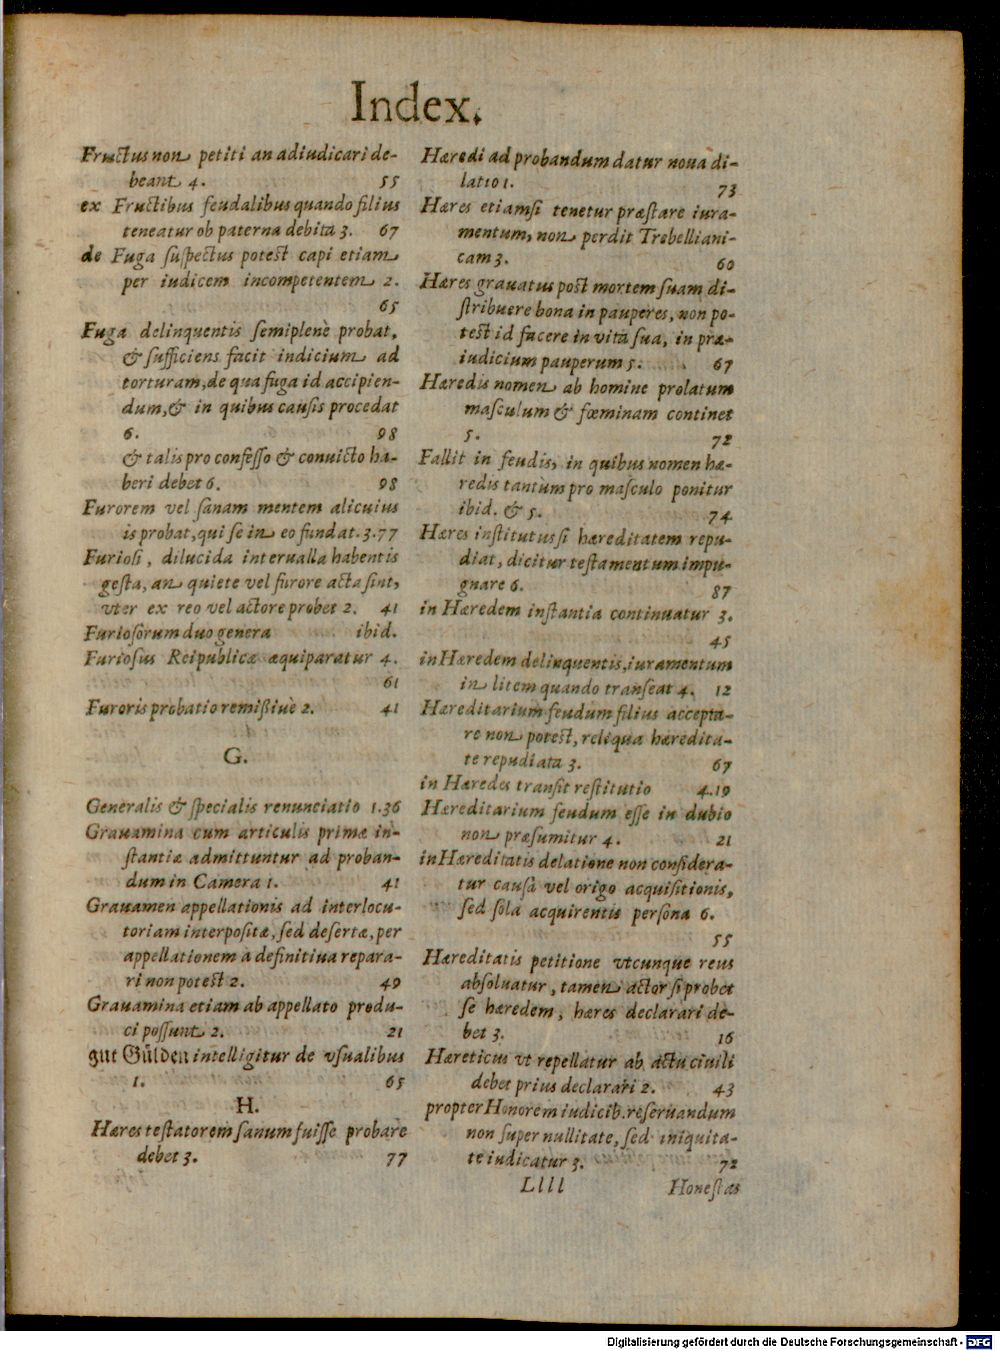 Index.
Fructus non petiti an adiudicari de-
beant 4. 55
ex Fructibus feudalibus quando filius
teneatur ob paterna debita 3. 67
de Fuga suspectus potest capi etiam
per iudicem incompetentem 2.
65
Fuga delinquentis semiplenè probat,
& sufficiens facit indicium ad
torturam, de qua fuga id accipien-
dum, & in quibus causis procedat
6. 98
& talis pro confesso & conuicto ha-
beri debet 6. 98
Furorem vel sanam mentem alicuius
is probat, qui se in eo fundat. 3.77
Furiosi, dilucida interualla habentis
gesta, an quiete vel furore acta sint,
vter ex reo vel actore probet 2. 41
Furiosorum duo genera ibid.
Furiosus Reipublicæ æquiparatur 4.
61
Furoris probatio remißiuè 2. 41
G.
Generalis & specialis renunciatio 1.36
Grauamina cum articulis primæ in-
stantiæ admittuntur ad proban-
dum in Camera 1. 41
Grauamen appellationis ad interlocu-
toriam interpositæ, sed desertæ, per
appellationem à definitiua repara-
ri non potest 2. 49
Grauamina etiam ab appellato produ-
ci possunt 2. 21
gut Gülden intelligitur de vsualibus
1. 65
H.
Hæres testatorem sanum fuisse probare
debet 3. 77
Hæredi ad probandum datur noua di-
latio 1. 73
Hæres etiamsi tenetur præstare iura-
mentum, non perdit Trebelliani-
cam 3. 60
Hæres grauatus post mortem suam di-
stribuere bona in pauperes, non po-
test id facere in vita sua, in præ-
iudicium pauperum 5. 67
Hæredis nomen ab homine prolatum
masculum & fœminam continet
5. 72
Fallit in feudis, in quibus nomen hæ-
redis tantùm pro masculo ponitur
ibid. & 5. 74
Hæres institutus si hæreditatem repu-
diat, dicitur testamentum impu-
gnare 6. 87
in Hæredem instantia continuatur 3.
45
in Hæredem delinquentis, iuramentum
in litem quando transeat 4. 12
Hæreditarium feudum filius accepta-
re non potest, reliqua hæredita-
te repudiata 3. 67
in Hæredes transit restitutio 4.19
Hæreditarium feudum esse in dubio
non præsumitur 4. 21
in Hæreditatis delatione non considera-
tur causa vel origo acquisitionis,
sed sola acquirentis persona 6.
55
Hæreditatis petitione vtcunque reus
absoluatur, tamen actor si probet
se hæredem, hæres declarari de-
bet 3. 16
Hæreticus vt repellatur ab actu ciuili
debet prius declarari 2. 43
propter Honorem iudicib. reseruandum
non super nullitate, sed iniquita-
te iudicatur 3. 72
Llll Honestas
Digitalisierung gefördert durch die Deutsche Forschungsgemeinschaft - DFG